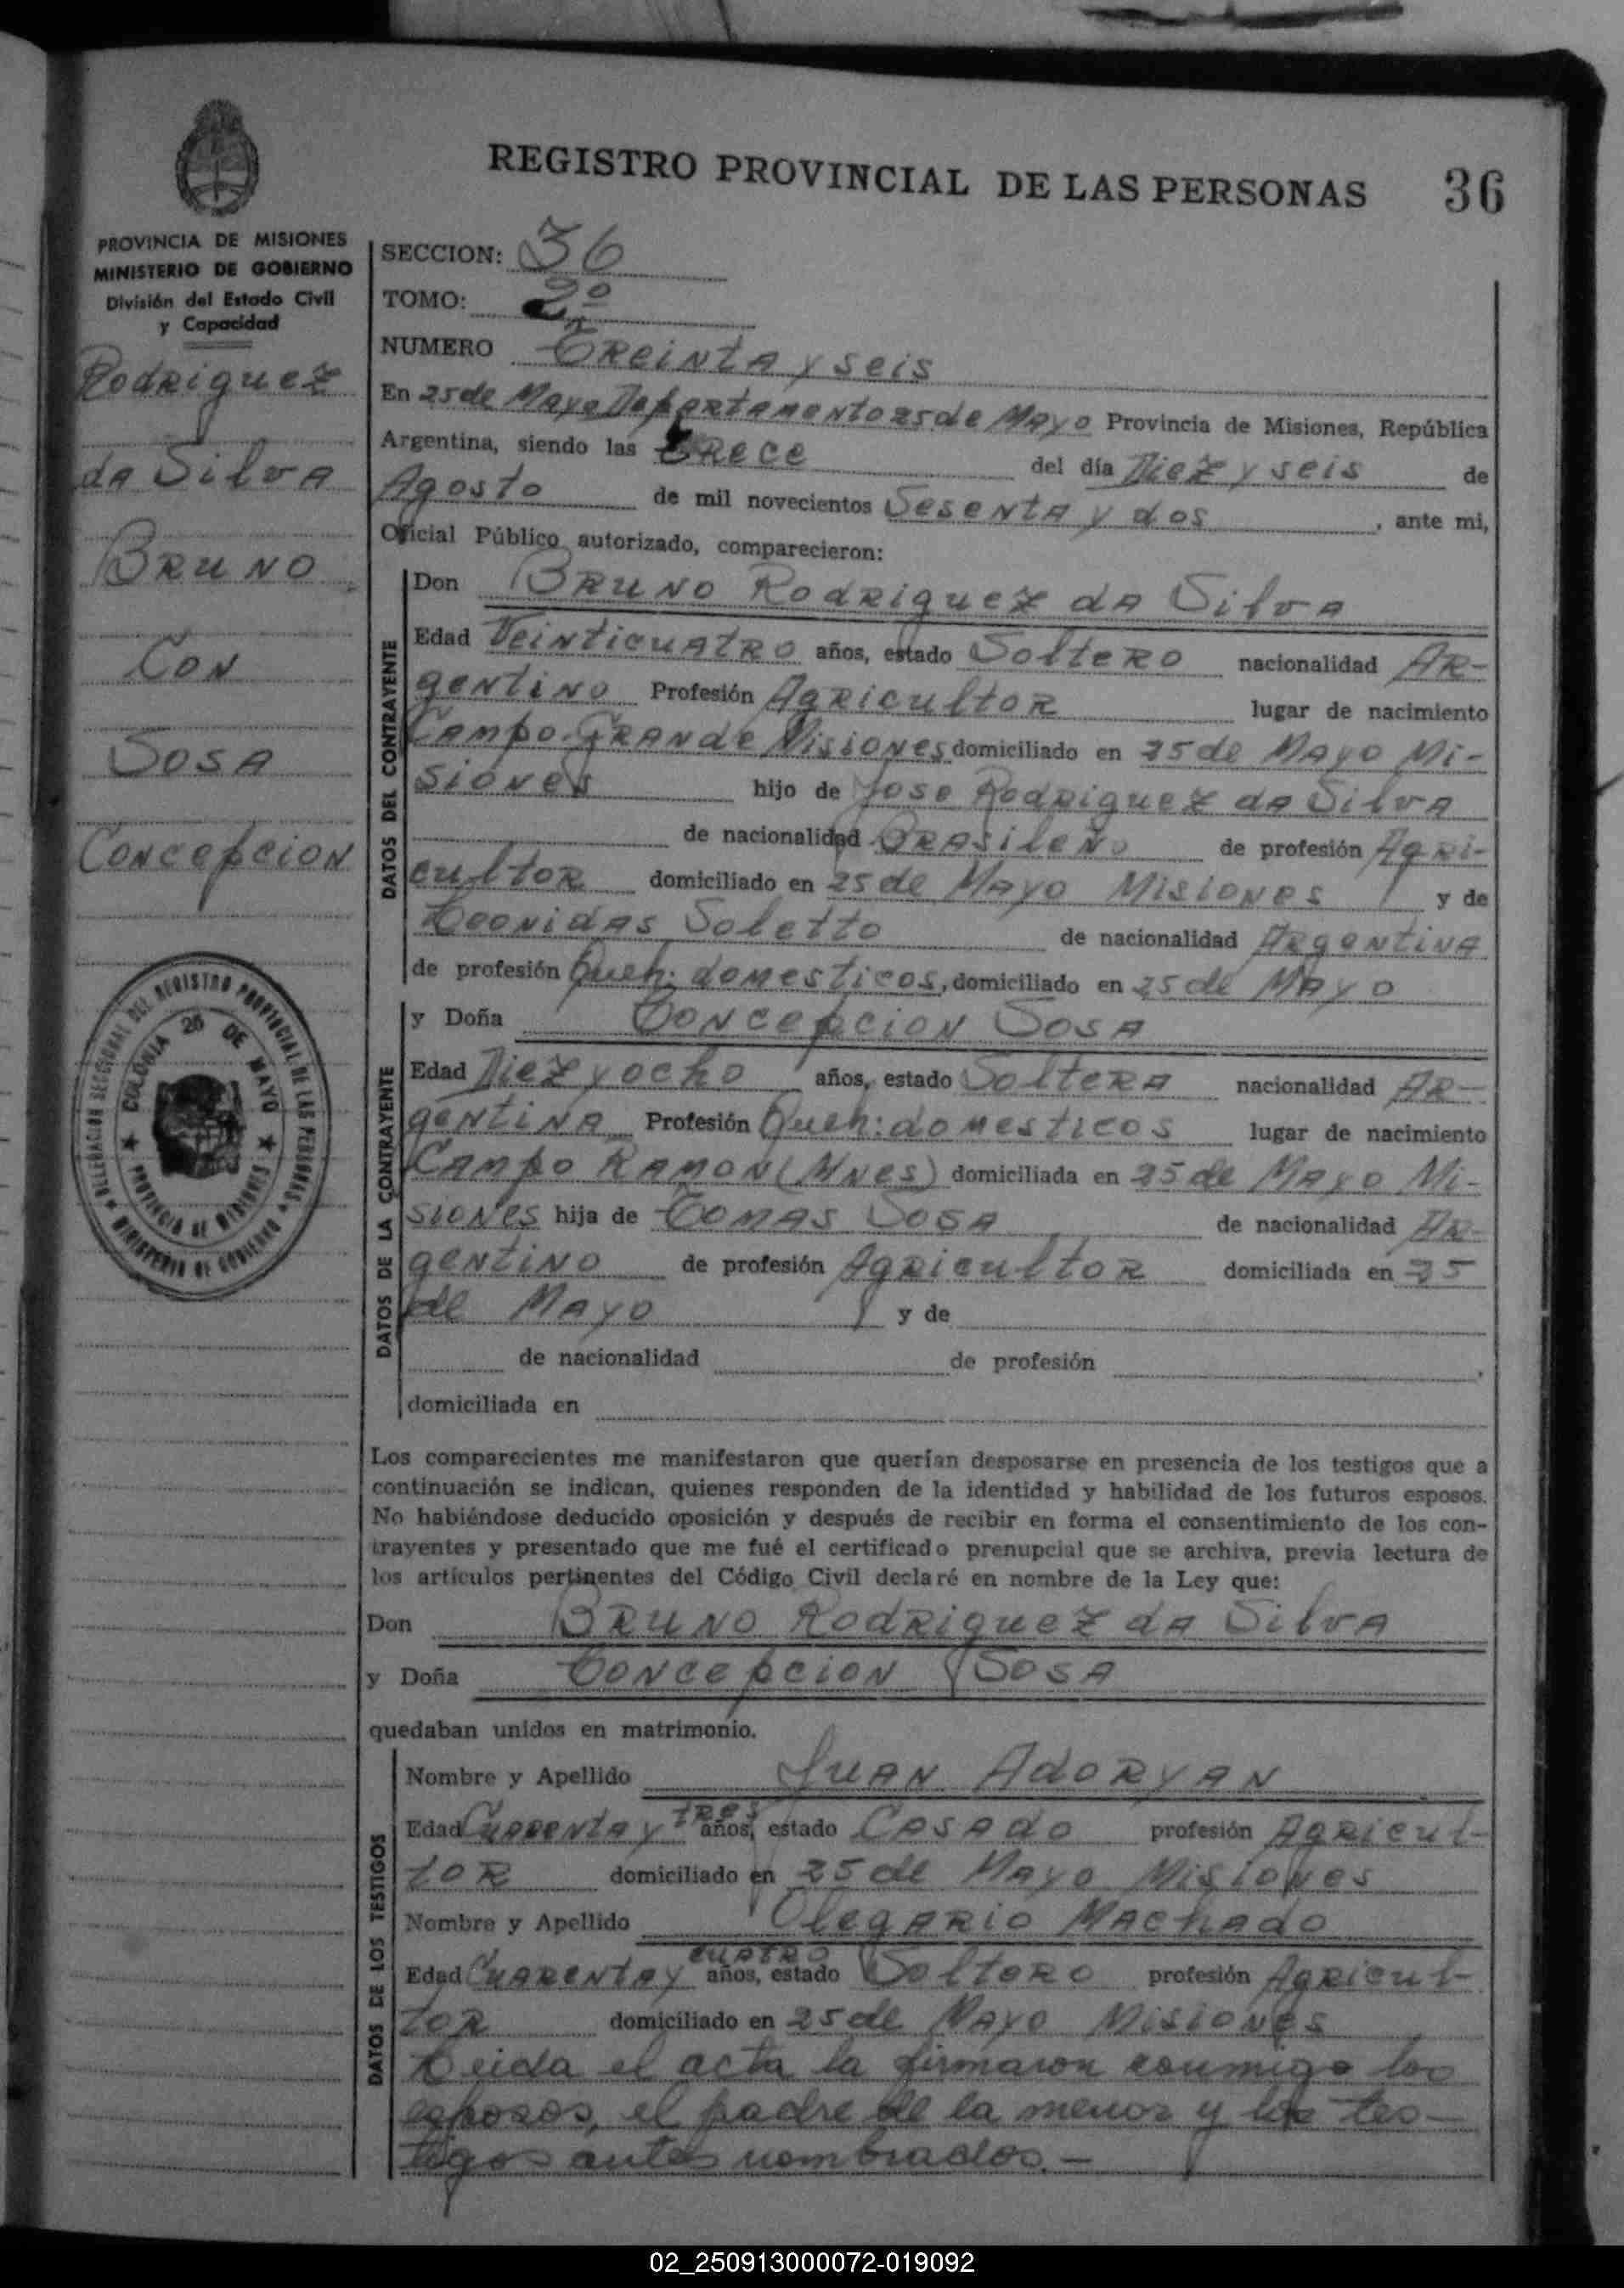 REGISTRO PROVINCIAL DE LAS PERSONAS 36
PROVINCIA DE MISIONES
MINISTERIO DE GOBIERNO
División del Estado Civil
y Capacidad
Rodriguez
da Silva
Bruno
Con
Sosa
Concepcion
DELEGACION SECCIONAL DEL REGISTRO PROVINCIAL DE LAS PERSONAS
MINISTERIO DE GOBIERNO
COLONIA 25 DE MAYO
PROVINCIA DE MISIONES
SECCION: 36
TOMO: 2º
NUMERO Treinta y seis
En 25 de Mayo Departamento 25 de Mayo Provincia de Misiones, República
Argentina, siendo las trece del día Diez y seis de
Agosto de mil novecientos Sesenta y dos, ante mi,
Oficial Público autorizado, comparecieron:
DATOS DEL CONTRAYENTE
Don Bruno Rodriguez da Silva
Edad Veinticuatro años, estado Soltero nacionalidad Ar-
gentino Profesión Agricultor lugar de nacimiento
Campo Grande Misiones domiciliado en 25 de Mayo Mi-
siones hijo de Jose Rodriguez da Silva
de nacionalidad Brasileño de profesión Agri-
cultor domiciliado en 25 de Mayo Misiones y de
Leonidas Soletto de nacionalidad Argentina
de profesión Queh: domesticos, domiciliado en 25 de Mayo
DATOS DE LA CONTRAYENTE
y Doña Concepcion Sosa
Edad Diez y ocho años, estado Soltera nacionalidad Ar-
gentina Profesión Queh: domesticos lugar de nacimiento
Campo Ramon (Mnes) domiciliada en 25 de Mayo Mi-
siones hija de Tomas Sosa de nacionalidad Ar-
gentino de profesión Agricultor domiciliada en 25
de Mayo y de
de nacionalidad de profesión
domiciliada en
Los comparecientes me manifestaron que querían desposarse en presencia de los testigos que a
continuación se indican, quienes responden de la identidad y habilidad de los futuros esposos.
No habiéndose deducido oposición y después de recibir en forma el consentimiento de los con-
trayentes y presentado que me fué el certificado prenupcial que se archiva, previa lectura de
los artículos pertinentes del Código Civil declaré en nombre de la Ley que:
Don Bruno Rodriguez da Silva
y Doña Concepcion Sosa
quedaban unidos en matrimonio.
DATOS DE LOS TESTIGOS
Nombre y Apellido Juan Adoryan
Edad Cuarenta y tres años, estado Casado profesión Agricul-
tor domiciliado en 25 de Mayo Misiones
Nombre y Apellido Olegario Machado
Edad Cuarenta y cuatro años, estado Soltero profesión Agricul-
tor domiciliado en 25 de Mayo Misiones
Leida el acta la firmaron conmigo los
esposos, el padre de la menor y los tes-
tigos antes nombrados.-
02_250913000072-019092